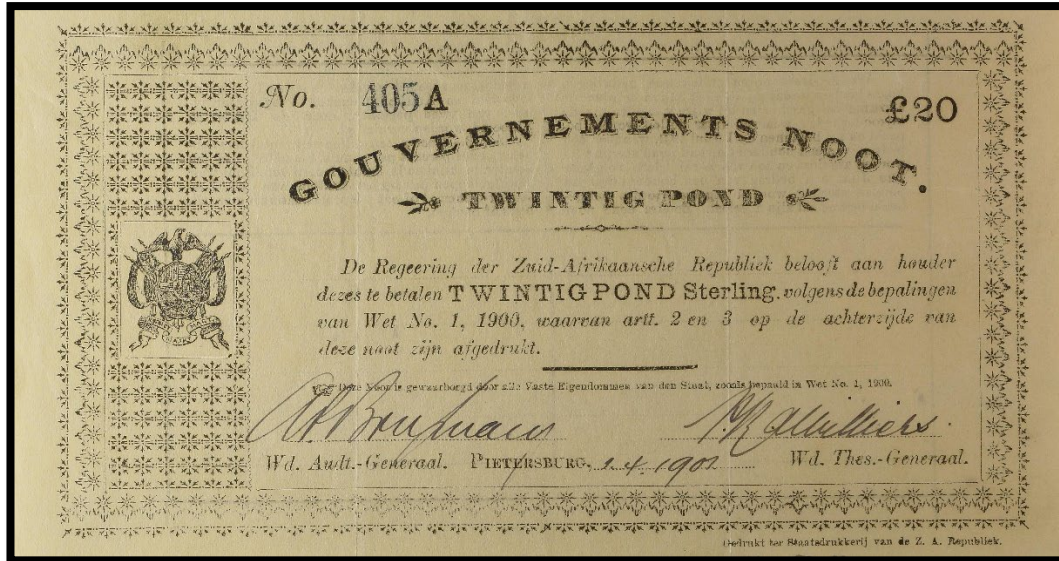 No. 405A £20
GOUVERNEMENTS NOOT.
TWINTIG POND
De Regeering der Zuid-Afrikaansche Republiek belooft aan houder
dezes te betalen TWINTIG POND Sterling, volgens de bepalingen
van Wet No. 1, 1900, waarvan artt. 2 en 3 op de achterzijde van
deze noot zijn afgedrukt.
Deze Noot is gewaarborgd door alle Vaste Eigendommen van den Staat, zooals bepaald in Wet No. 1, 1900.
Wd. Audt.-Generaal. PIETERSBURG, 1901 Wd. Thes.-Generaal.
Gedrukt ter Staatsdrukkerij van de Z. A. Republiek.